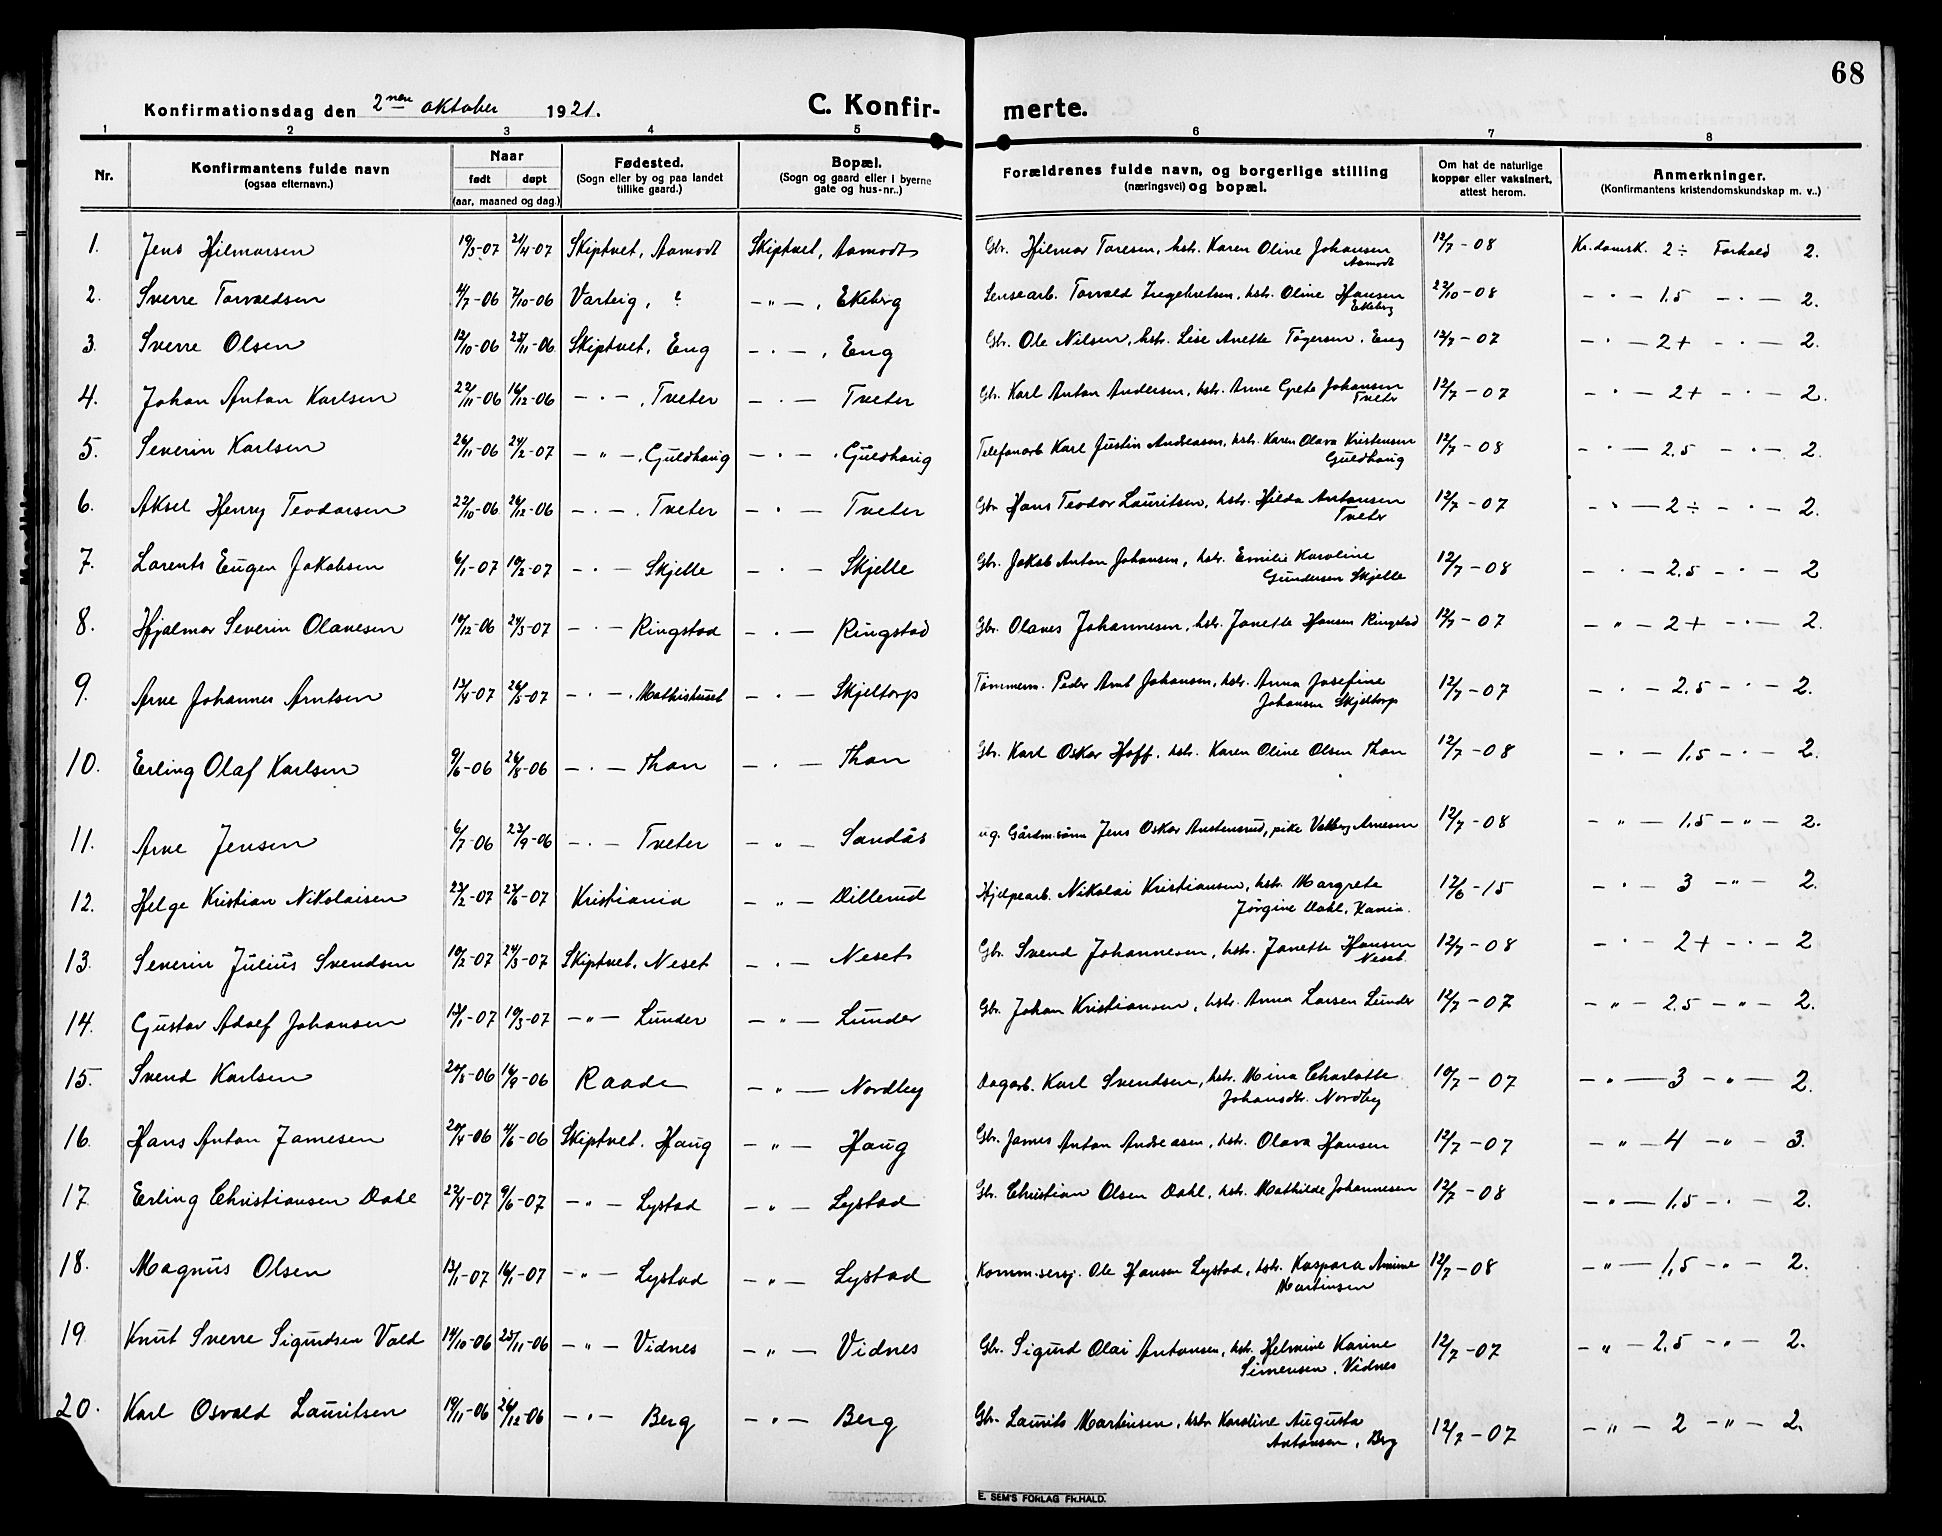 68
Konfirmationsdag den 2nen oktober 1921. C. Konfir- merte.
1 2 3 4 5 6 7 8
Nr. Konfirmantens fulde navn (ogsaa efternavn.) Naar født døpt (aar, maaned og dag.) Fødested. (Sogn eller by og paa landet tillike gaard.) Bopæl. (Sogn og gaard eller i byerne gate og hus-nr..) Forældrenes fulde navn, og borgerlige stilling (næringsvei) og bopæl. Om hat de naturlige kopper eller vaksinert, attest herom. Anmerkninger. (Konfirmantens kristendomskundskap m. v..)
1. Jens Hilmarsen 19/3-07 21/4-07 Skiptvet, Aamodt Skiptvet, Aamodt Gbr. Hilmar Toresen, hstr. Karen Oline Johansen Aamodt 12/7-08 Kr.domsk. 2÷ Forhold 2.
2. Sverre Torvaldsen 4/7-06 7/10-06 Varteig, ? -"-, Ekeberg Lensearb. Torvald Ingebretsen, hstr. Oline Hansen Ekeberg 22/10-08 -·- 1.5 -·- 2.
3. Sverre Olsen 12/10-06 25/11-06 Skiptvet, Eng -·-, Eng Gbr. Ole Nilsen, hstr. Lise Anette Tøgersen, Eng 12/7-07 -·- 2+ -·- 2.
4. Johan Anton Karlsen 22/11-06 16/12-06 -·-, Tveter -·- Tveter Gbr. Karl Anton Andersen, hstr. Anne Grete Johansen Tveter 12/7-07 -·- 2+ -·- 2.
5. Severin Karlsen 26/11-06 24/2-07 -"-, Guldhaug -·-, Guldhaug Telefonarb. Karl Justin Andreasen, hstr. Karen Olava Kristensen Guldhaug 12/7-08 -·- 2.5 -·- 2.
6. Aksel Henry Teodorsen 22/10-06 26/12-06 -·-, Tveter -·- Tveter Gbr. Hans Teodor Lauritsen, hstr. Hilda Antonsen Tveter 12/7-07 -·- 2÷ -·- 2.
7. Lorents Eugen Jakobsen 6/1-07 10/2-07 -·- Skjelle -·- Skjelle Gbr. Jakob Anton Johansen, hstr. Emilie Karoline Gundersen Skjelle 12/7-08 -·- 2.5 -·- 2
8. Hjalmar Severin Olavesen 10/12-06 24/3-07 -·- Ringstad -·- Ringstad Gbr. Olaves Johannesen, hstr. Janette Hansen Ringstad 12/7-07 -"- 2+ -·- 2.
9. Arne Johannes Arntsen 13/4-07 26/5-07 -·-, Mathishuset -·- Skjeltorp Tømmerm. Peder Arnt Johansen, hstr. Anna Josefine Johansen Skjeltorp 12/7-07 -·- 2.5 -·- 2.
10. Erling Olaf Karlsen 9/6-06 26/8-06 -·- Thon -·- Thon Gbr. Karl Oskar Hoff, hstr. Karen Oline Olsen Thon 12/7-08 -·- 1.5 -·- 2.
11. Arne Jensen 6/7-06 23/9-06 -·- Tveter -"- Sandås ug. Gårdm.sønn Jens Oskar Austensrud, pike Valborg Arnesen 12/7-08 -"- 1.5 -"- 2.
12. Helge Kristian Nikolaisen 23/2-07 23/6-07 Kristiania -"- Dillerud Hjelpearb. Nikolai Kristiansen, hstr. Margrete Jørgine Dahl, Kania. 12/6-15 -·- 3 -"- 2.
13. Severin Julius Svendsen 10/2-07 24/3-07 Skiptvet. Neset -·- Neset Gbr. Svend Johannesen, hstr. Janette Hansen Neset. 12/7-08 -·- 2+ -·- 2
14. Gustav Adolf Johansen 13/1-07 10/3-07 -"- Lunder -"- Lunder Gbr. Johan Kristiansen, hstr. Anna Larsen Lunder 12/7-07 -"- 2.5 -"- 2.
15. Svend Karlsen 20/8-06 16/9-06 Raade -"- Nordby Dagarb. Karl Svendsen, hstr. Mina Charlotte Johansdtr. Nordby 10/7-07 -"- 3 -"- 2.
16. Hans Anton Jamesen 20/4-06 4/6-06 Skiptvet. Haug -"- Haug Gbr. James Anton Andreasen, hstr. Olava Hansen 12/7-07 -"- 4 -"- 3.
17. Erling Christiansen Dahl 27/4-07 9/6-07 -"- Lystad -"- Lystad Gbr. Christian Olsen Dahl, hstr. Mathilde Johannesen 12/7-08 -"- 1.5 -·- 2.
18. Magnus Olsen 13/1-07 16/1-07 -"- Lystad -"- Lystad Komm.sersj. Ole Hansen Lystad, hstr. Kaspara Amine Martinsen 12/7-08 -"- 1.5 -"- 2.
19 Knut Sverre Sigurdsen Vold 14/10-06 25/11-06 -"- Vidnes -"- Vidnes Gbr. Sigurd Olai Antonsen, hstr. Helmine Karine Simensen, Vidnes 12/7-07 -"- 2.5 -"- 2.
20. Karl Osvald Lauritsen 19/11-06 26/12-06 -"- Berg -"- Berg Gbr. Laurits Martinsen, hstr. Karoline Augusta Antonsen, Berg 12/7-07 -"- 2 -"- 2.
E. SEM'S FORLAG FR.HALD.